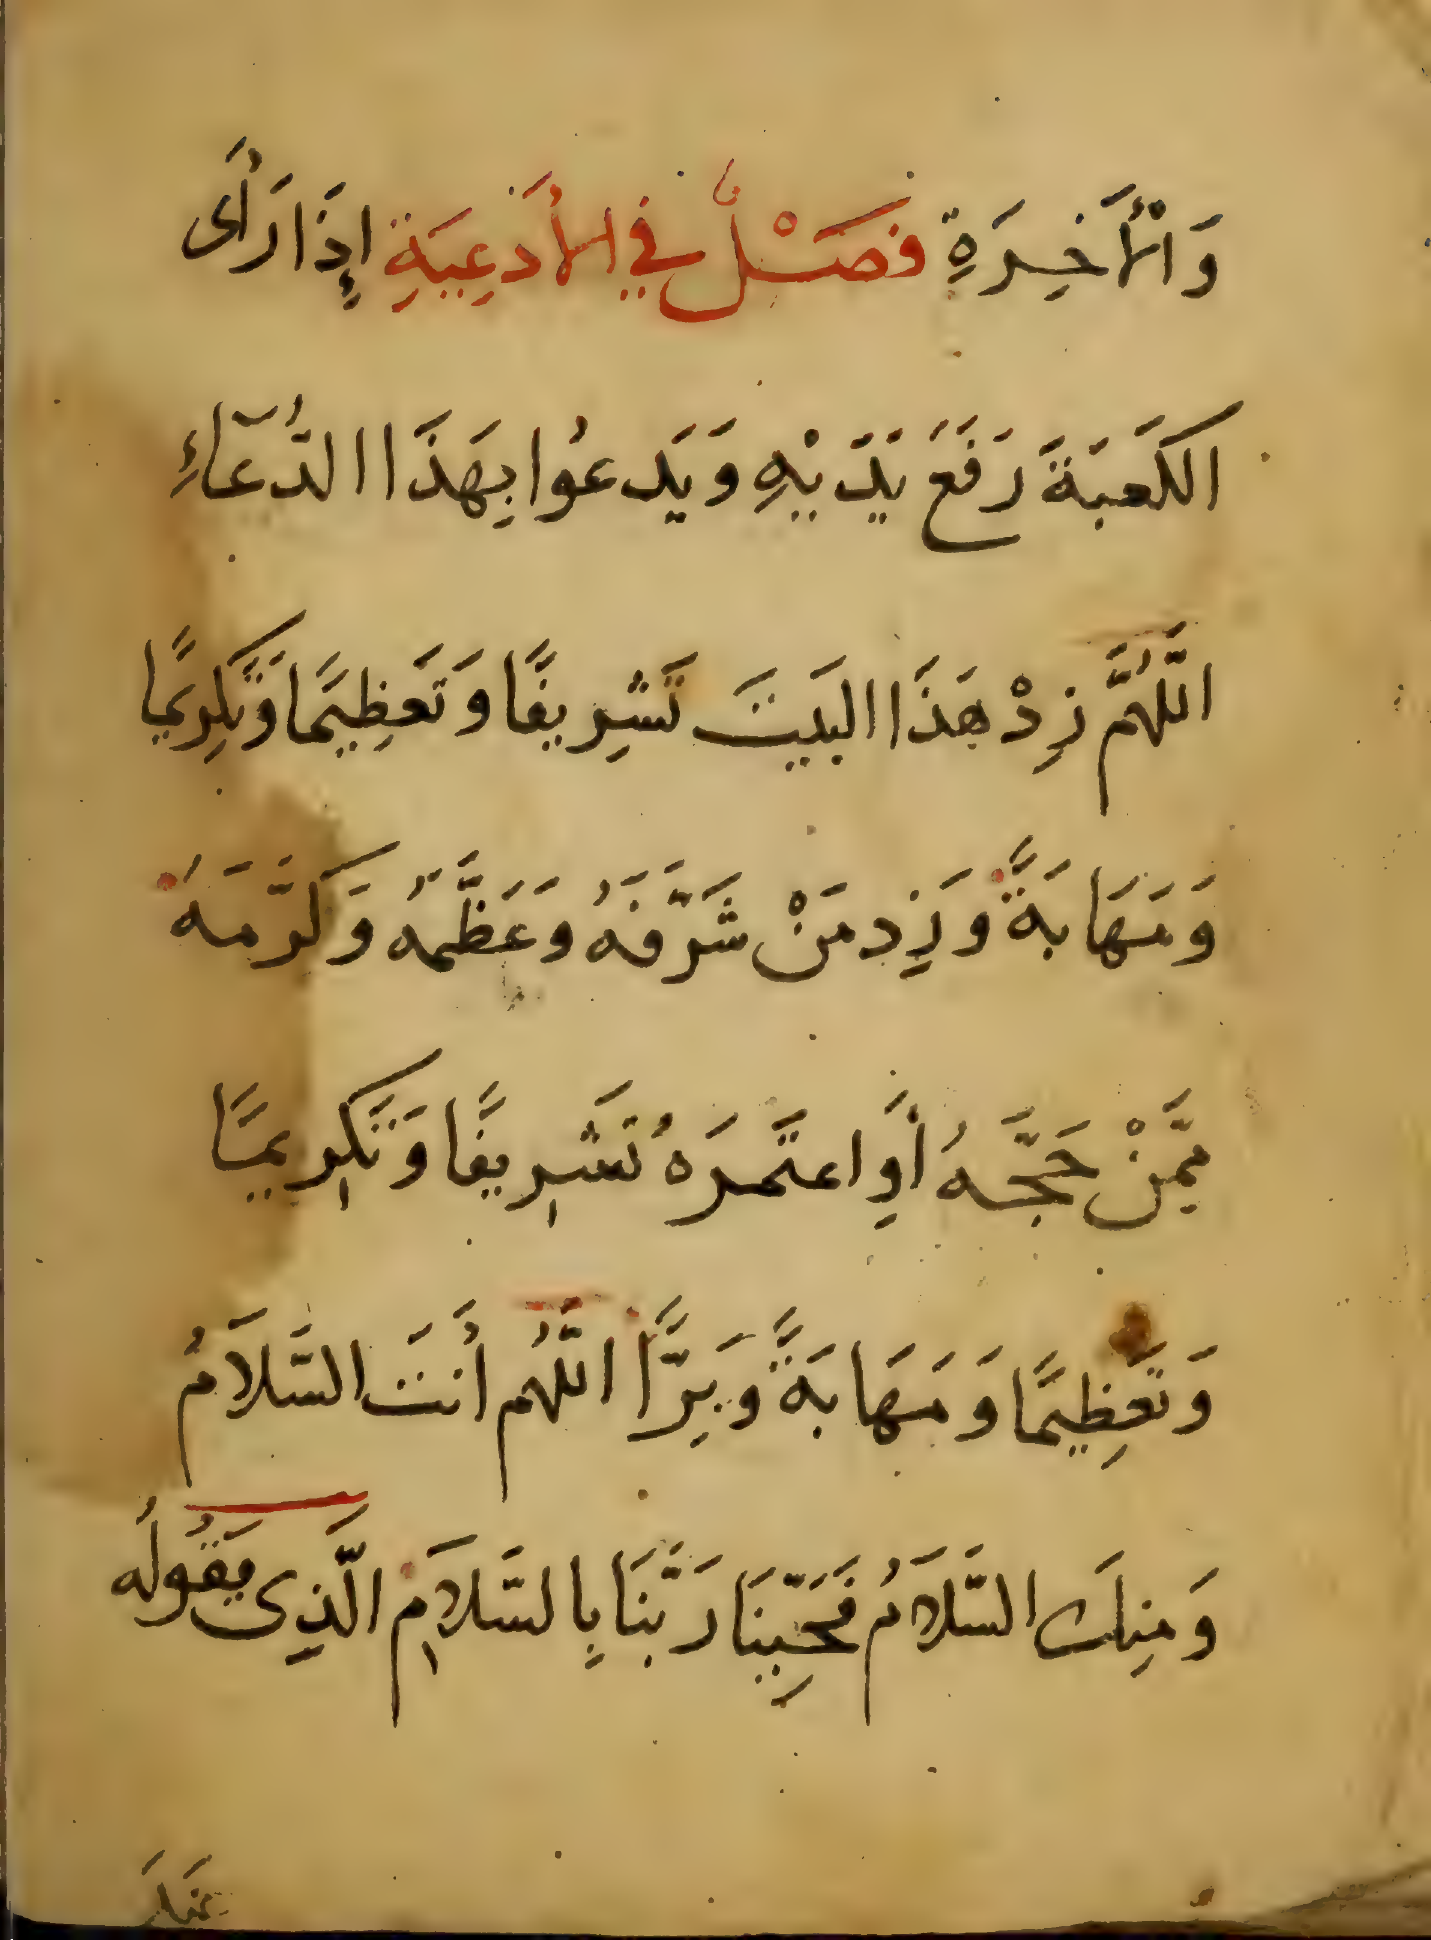 وَالْأَخِرَةِ فَصْلٌ فِي الأَدعِيَةِ إِذَا رَأَى
الكَعبَةَ رَفَعَ يَدَيْهِ وَيَدعُوا بِهَذَا الدُّعَآءِ
اللَّهُمَّ زِدْ هَذَا البَيتَ تَشرِيفًا وَتَعظِيمًا وَتَكرِيمًا
وَمَهَابَةً وَزِد مَنْ شَرَّفَهُ وَعَظَّمَهُ وَكَرَّمَهُ
مِمَّنْ حَجَّهُ أَوِ اعتَمَرَهُ تَشرِيفًا وَتَكرِيمًا
وَتَعظِيمًا وَمَهَابَةً وَبِرًّا اللَّهُم أَنتَ السَّلَامُ
وَمِنكَ السَّلَامُ فَحَيِّنَا رَبَّنَا بِالسَّلَامِ الَّذِى يَقُولُه